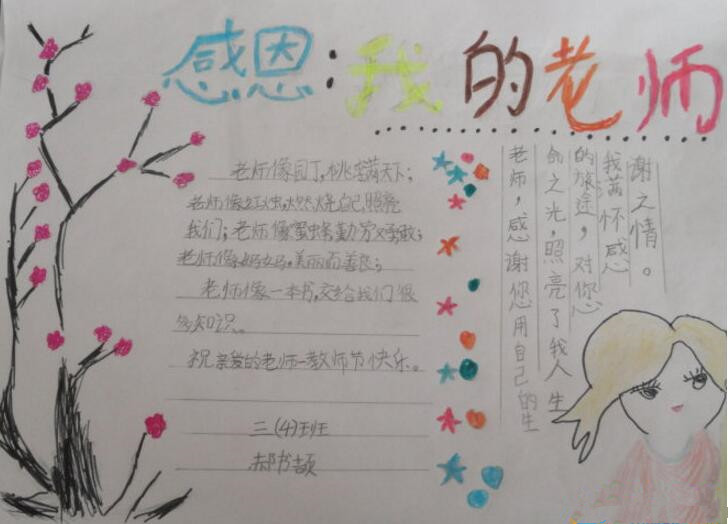 感恩:我的老师
老师像园丁,桃李满天下;
老师像红虫火燃烧自己,照亮
我们;老师像蜜蜂,勤劳又勇敢;
老师像妈妈,美丽而善良;
老师像一本书,交给我们很
多知识。
祝亲爱的老师-教师节快乐。
三(4)班
郝书颉
老师,感谢您用自己的生
命之光,照亮了我人生
的旅途,对您
我满怀感
谢之情。